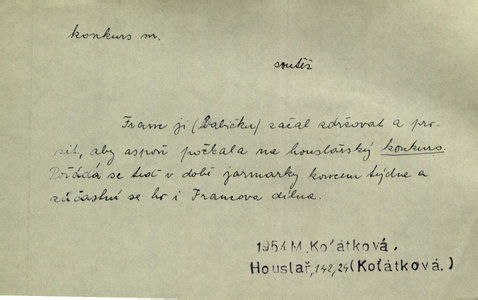 konkurs m.
soutěž
Franc ji (Babičku) začal zdržovat a pro-
sit, aby aspoň počkala na houslařský konkurs.
Pořádá se teď v době jarmarky koncem týdne a
zúčastní se ho i Francova dílna.
1954 M. Koťátková.
Houslař, 142, 24 (Koťátková.)